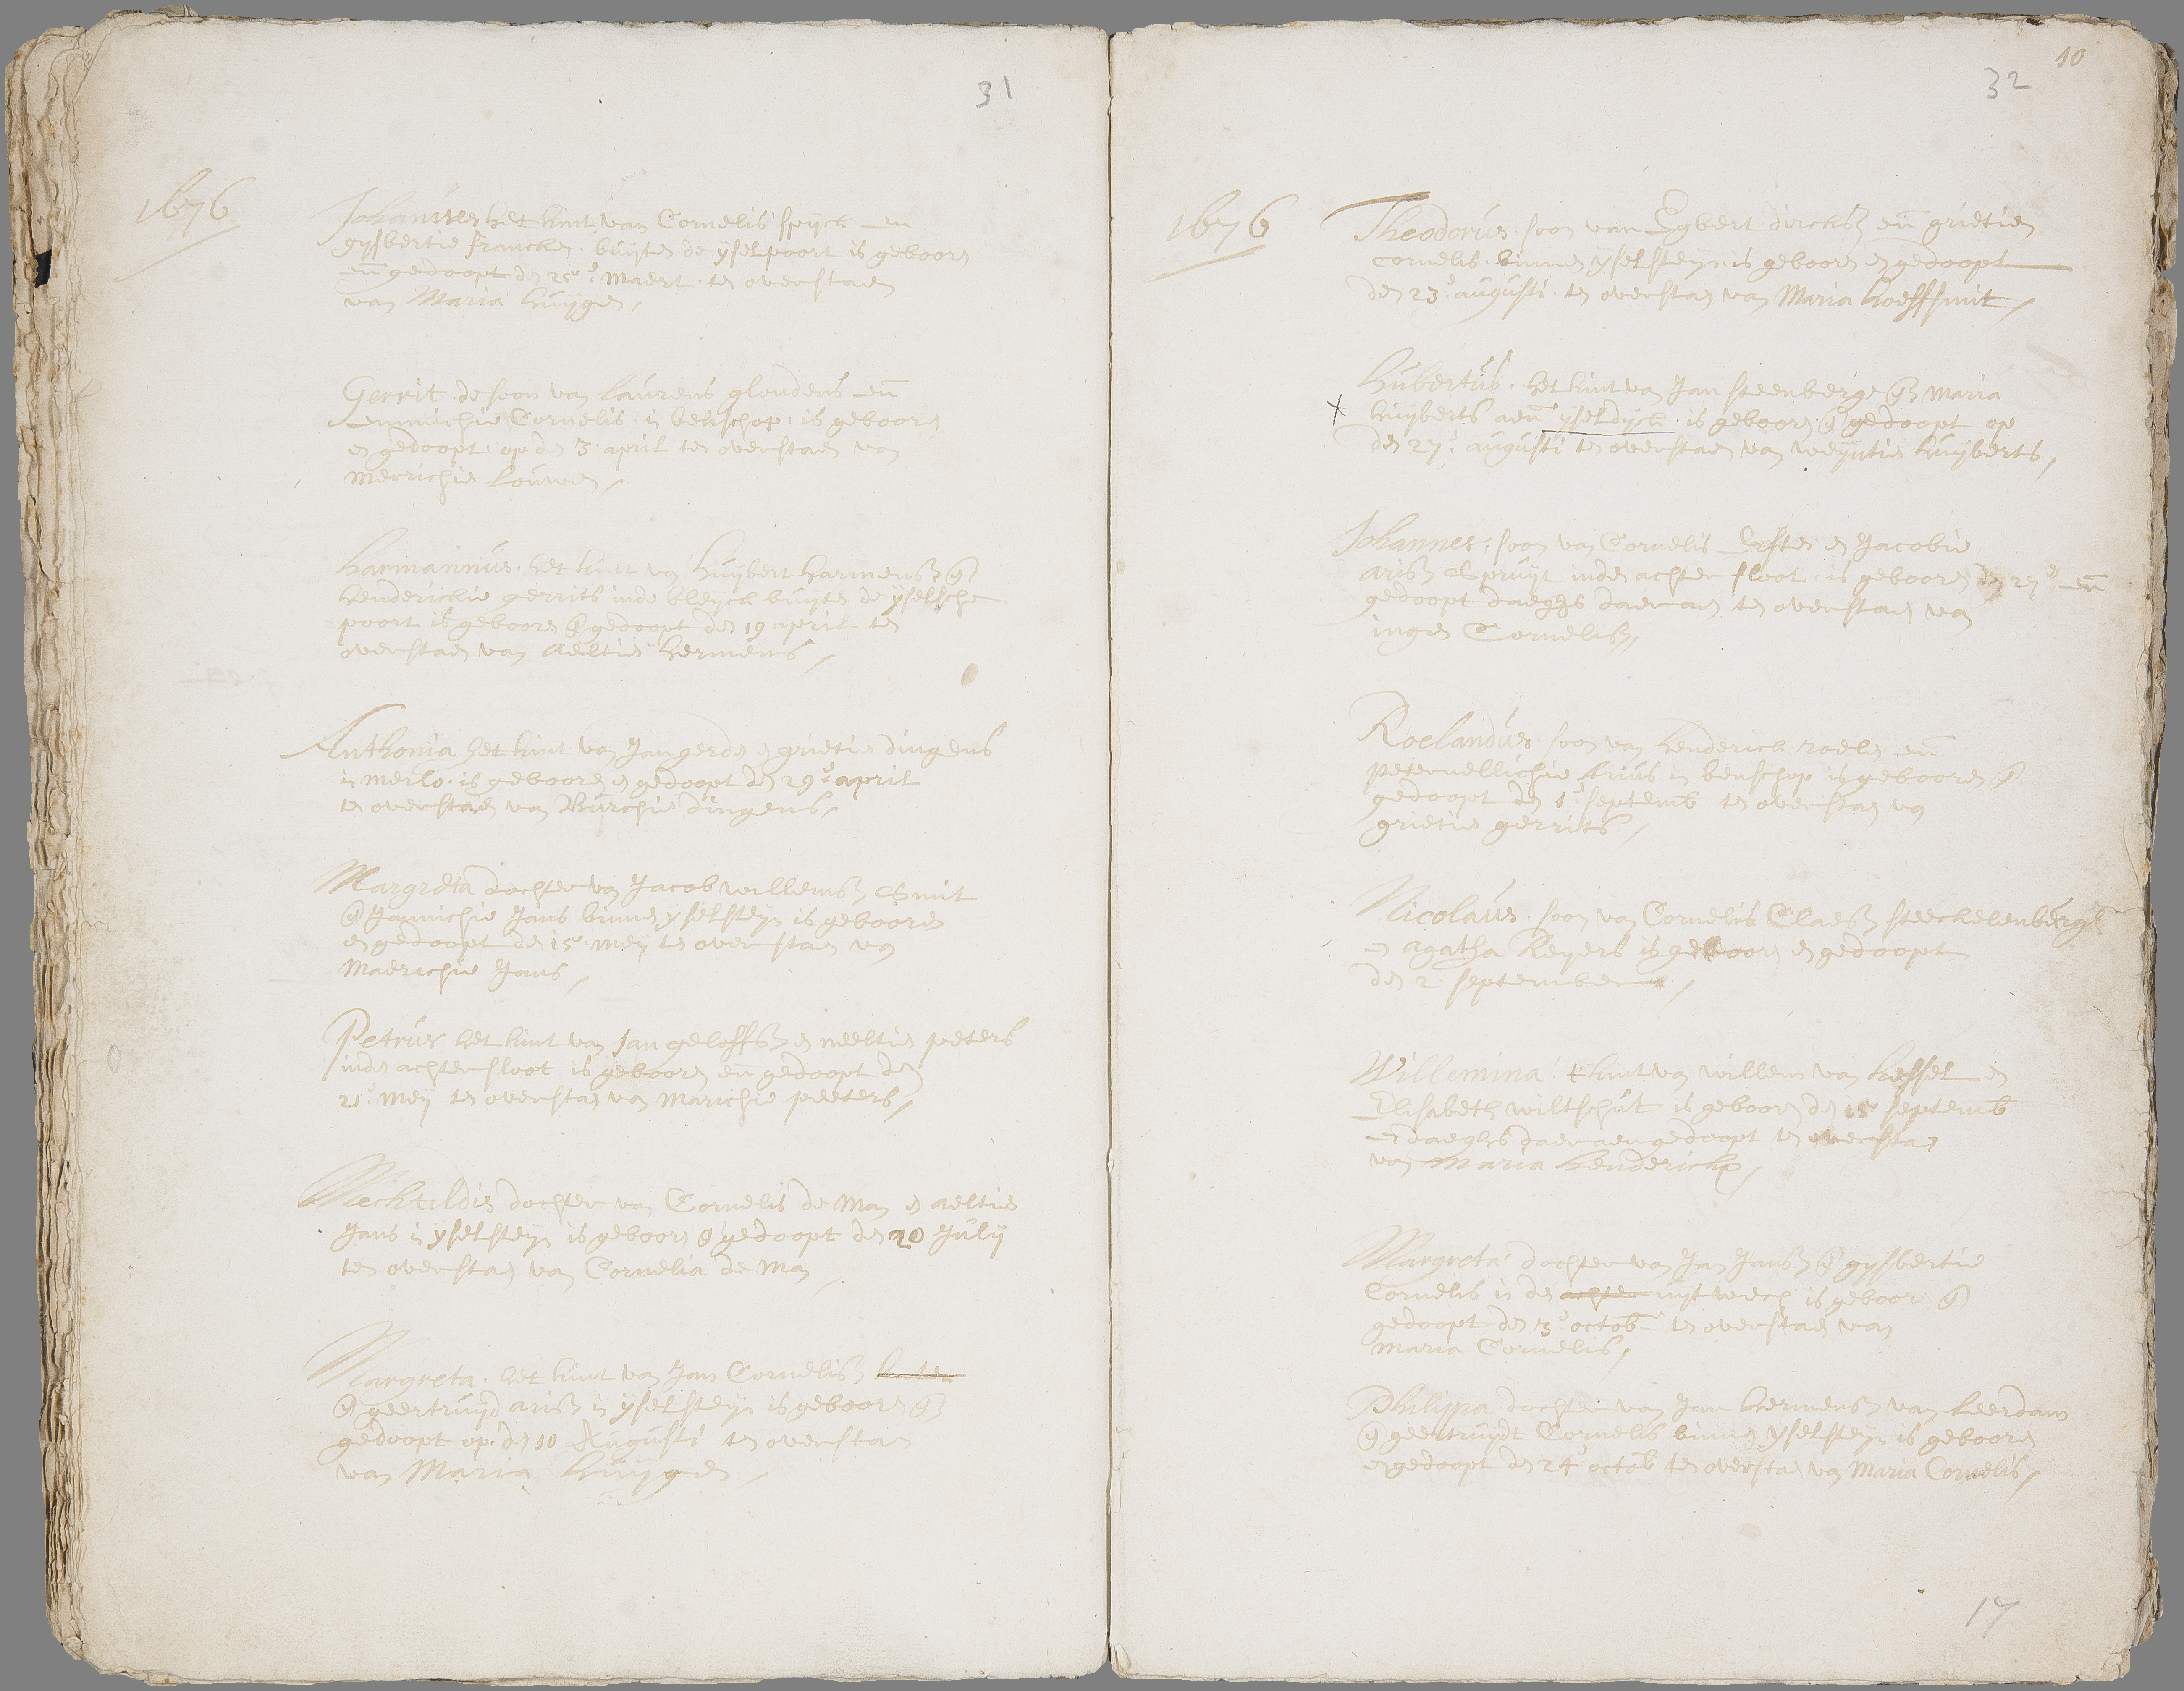 31
1676
Johannes het kint van Cornelis speijck en
gijsbertie francken buijten de ijselpoort is gebooren
en gedoopt den 25e Maert ten overstaen
van Maria huijgen
Gerrit de soon van laurens gloudens en
Cornelis in benschop is gebooren
en gedoopt op den 3 april ten overstaen van
merrichie louwen
harmannus het kint van huijbert harmensz en
henderickie gerrits inde bleijck buijten de ijselsche
poort is gebooren en gedoopt den 19 april ten
overstaen van aeltie hermens
Anthonia het kint van Jan gerden en grietie dingens
in merlo is gebooren en gedoopt den 29e april
ten overstaen van Burchie dingens
Margreta dochter van Jacob willemsz Smit
en Jannichie Jans binnen ijselsteijn is gebooren
en gedoopt den 15 meij ten overstaen van
Maerichie Jans
Petrus het kint van Jan geloffsz en neeltie peeters
inde achtersloot is gebooren en gedoopt den
21e Meij ten overstaen van Marichie peeters
Mechtildis dochter van Cornelis de Man en aeltie
Jans in ijselsteijn is gebooren en gedoopt den 20 Julij
ten overstaen van Cornelia de Man
Margreta het kint van Jan Cornelisz
en geertruijd arisz in ijselsteijn is gebooren en
gedoopt op den 10 Augusti ten overstaen
van Maria huijgen
10
32
1676
Theodorus soon van Egbert dircksz en grietien
cornelis binnen ijselsteijn is gebooren en gedoopt
den 23e augusti ten overstaen van Maria hoeffsmit
hubertus het kint van Jan steenberge en Maria
x huijberts aen ijseldijck is gebooren en gedoopt op
den 27e augusti ten overstaen van weijntie huijberts
Johannes soon van Cornelis en Jacobie
arisz Spruijt inde achtersloot is gebooren den 27e en
gedoopt daeghs daeraen ten overstaen van
ingen Cornelisz
Roelandus soon van henderick roelen en
peternellichie Arius in benschop is gebooren en
gedoopt den 1e septemb ten overstaen van
grietie gerrits
Nicolaus soon van Cornelis Claesz steeckelenbergh
en agatha Reijers is gebooren en gedoopt
den 2 september
Willemina t kint van willem van hessel en
Elisabeth wiltschut is gebooren den 15 septemb
en daeghs daeraen gedoopt ten overstaen
van Maria henderickx
Margreta dochter van Jan Jansz en gijsbertie
Cornelis in den achter uijtwech is gebooren en
gedoopt den 3e octob ten overstaen van
Maria Cornelis
Philippa dochter van Jan hermensz van leerdam
en geertruijdt Cornelis binnen ijselsteijn is gebooren
en gedoopt den 24e octob ten overstaen van Maria Cornelis
17